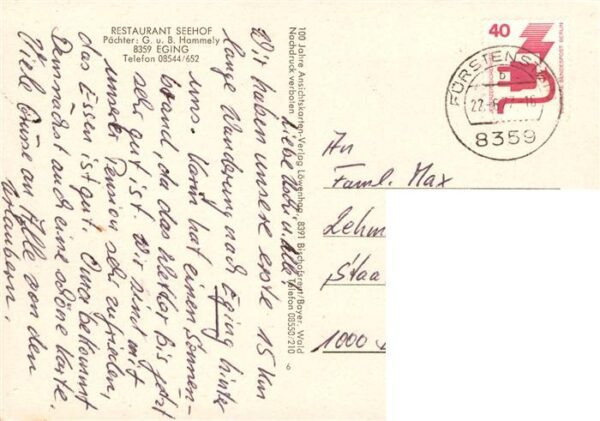 RESTAURANT SEEHOF
Pächter: G. u. B. Hammely
8359 EGING
Telefon 08544/652
Liebe
Wir haben unsere erste 15 km
lange Wanderung nach Eging hinter
uns. Karin hat einen Sonnen-
brand, da das Wetter bis jetzt
sehr gut ist. Wir sind mit
unserer Pension sehr zufrieden,
das Essen ist gut. Oma bekommt
Demnächst auch eine schöne Karte.
Viele Grüße an Alle von den
Urlaubern.
100 Jahre Ansichtskarten-Verlag Löwenhag, 8391 Bischofsreut/Bayer. Wald
Nachdruck verboten Telefon 08550/210
6
40
DEUTSCHE BUNDESPOST BERLIN
FÜRSTENST
b
22.
8359
An
Faml. Max
Lehm
Staa
1000